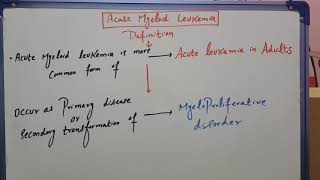 Acute Myeloid Leukemia
Definition
• Acute Myeloid leukemia is more
common form of
Acute leukemia in Adults
Occur as Primary disease
or
Secondary transformation of
MyeloProliferative
disorder